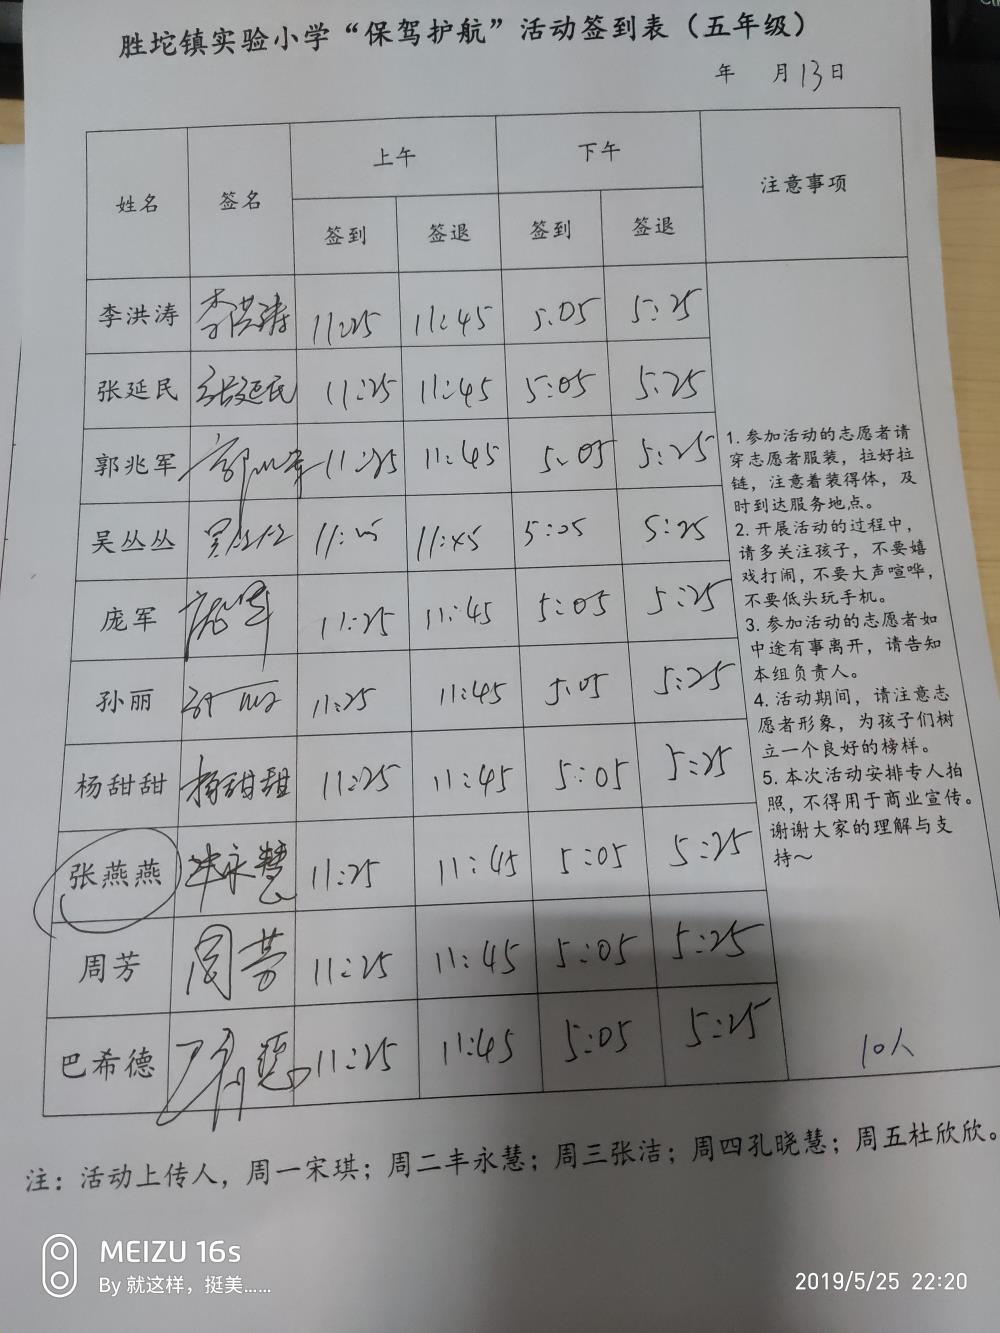 胜坨镇实验小学“保驾护航”活动签到表（五年级）
年 月13日
姓名 签名 上午 下午 注意事项
签到 签退 签到 签退
李洪涛 李洪涛 11:25 11:45 5:05 5:25
张延民 张延民 11:25 11:45 5:05 5:25
郭兆军 郭兆军 11:25 11:45 5:05 5:25
吴丛丛 吴丛丛 11:25 11:45 5:05 5:25
庞军 庞军 11:25 11:45 5:05 5:25
孙丽 孙丽 11:25 11:45 5:05 5:25
杨甜甜 杨甜甜 11:25 11:45 5:05 5:25
张燕燕 丰永慧 11:25 11:45 5:05 5:25
周芳 周芳 11:25 11:45 5:05 5:25
巴希德 巴希德 11:25 11:45 5:05 5:25
1. 参加活动的志愿者请
穿志愿者服装，拉好拉
链，注意着装得体，及
时到达服务地点。
2. 开展活动的过程中，
请多关注孩子，不要嬉
戏打闹，不要大声喧哗，
不要低头玩手机。
3. 参加活动的志愿者如
中途有事离开，请告知
本组负责人。
4. 活动期间，请注意志
愿者形象，为孩子们树
立一个良好的榜样。
5. 本次活动安排专人拍
照，不得用于商业宣传。
谢谢大家的理解与支
持～
10人
注：活动上传人，周一宋琪；周二丰永慧；周三张洁；周四孔晓慧；周五杜欣欣。
MEIZU 16s
By 就这样，挺美……
2019/5/25 22:20